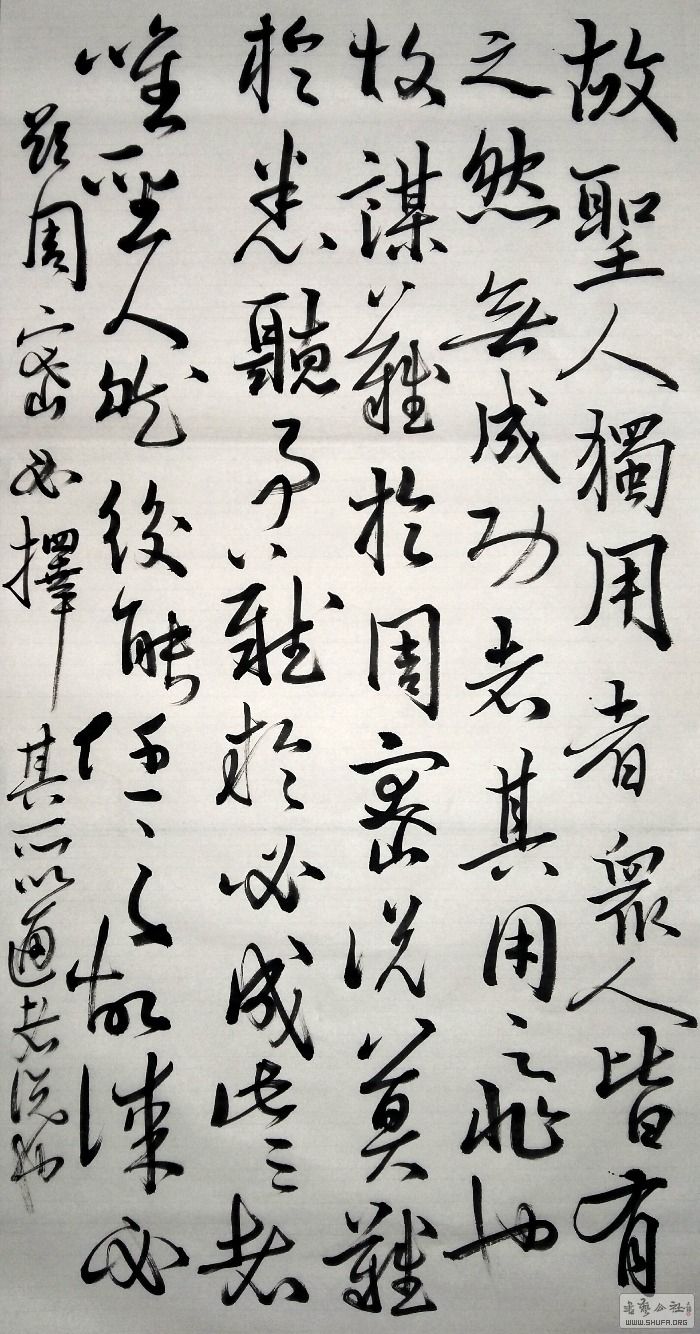 故聖人獨用者眾人皆有
之然無成功者其用之非也
故謀難於周密說莫難
於悉聽事難於必成此三者
唯聖人然後能任之故謀必
欲周密必擇其所以通者說也
書藝公社
WWW.SHUFA.ORG